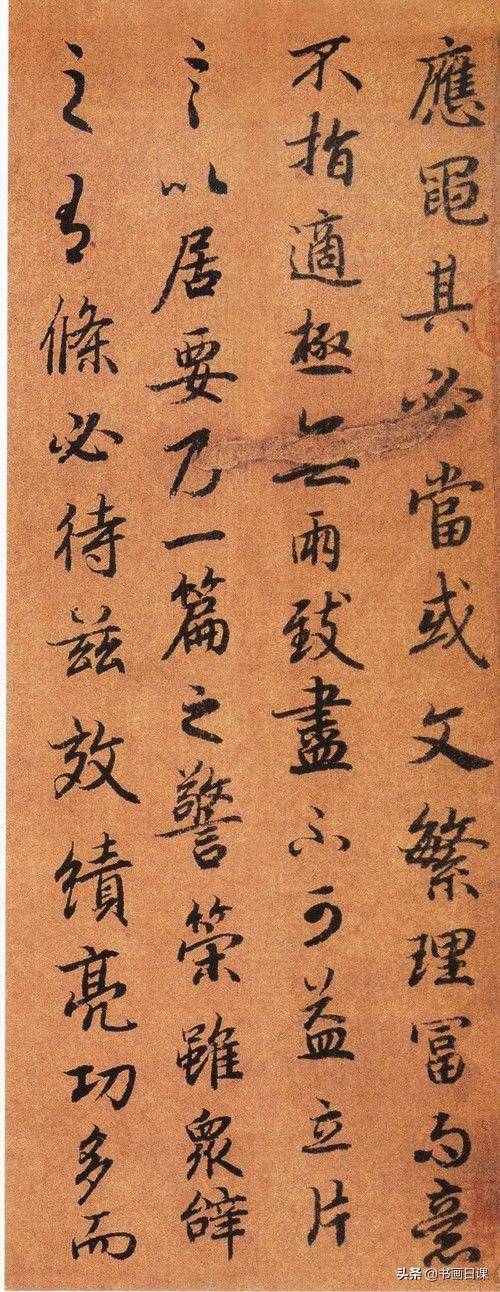 應黽其必當或文繁理富而意
不指適極無兩致盡不可益立片
言以居要乃一篇之警策雖衆辭
之有條必待兹效績亮功多而
头条 @书画日课